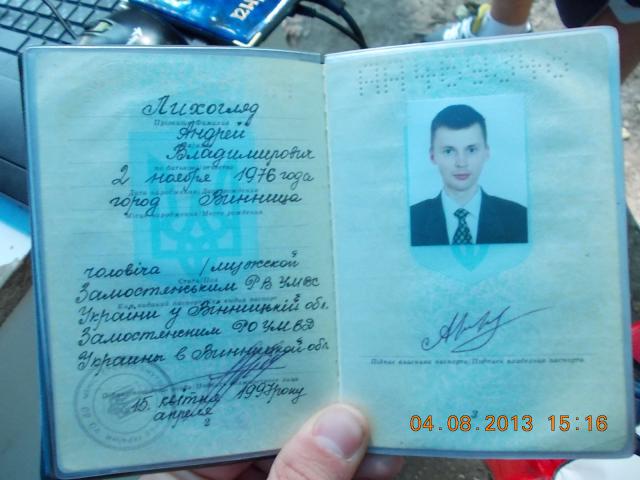 Лихогляд
Прізвище/Фамилия
Андрей
Владимирович
по батькові/отчество
2 ноября 1976 года
Дата народження/Дата рождения
город Винница
Місце народження/Место рождения
чоловіча / мужской
Стать/Пол
Замостянським РВ УМВС
України у Вінницькій обл.
Замостянским РО УМВД
Украины в Винницкой обл.
15 квітня 1997 року
апреля
2
Підпис власника паспорта/Подпись владельца паспорта
3
04.08.2013 15:16